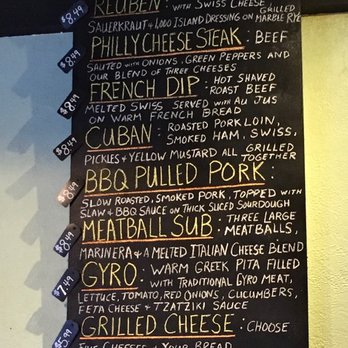 REUBEN: WITH SWISS CHEESE
$8.49
SAUERKRAUT & 1,000 ISLAND DRESSING ON GRILLED MARBLE RYE
PHILLY CHEESE STEAK: BEEF
$8.49
SAUTED WITH ONIONS, GREEN PEPPERS AND
OUR BLEND OF THREE CHEESES
FRENCH DIP: HOT SHAVED ROAST BEEF
$8.49
MELTED SWISS SERVED WITH AU JUS
ON WARM FRENCH BREAD
CUBAN: ROASTED PORK LOIN,
$8.49
SMOKED HAM, SWISS,
PICKLES & YELLOW MUSTARD ALL GRILLED TOGETHER
BBQ PULLED PORK:
$8.49
SLOW ROASTED, SMOKED PORK, TOPPED WITH
SLAW & BBQ SAUCE ON THICK SLICED SOURDOUGH
MEATBALL SUB: THREE LARGE
$8.49
MEATBALLS,
MARINERA & A MELTED ITALIAN CHEESE BLEND
GYRO: WARM GREEK PITA FILLED
$7.49
WITH TRADITIONAL GYRO MEAT,
LETTUCE, TOMATO, RED ONIONS, CUCUMBERS,
FETA CHEESE & TZATZIKI SAUCE
GRILLED CHEESE: CHOOSE
$5.99
FIVE CHEESES & YOUR BREAD